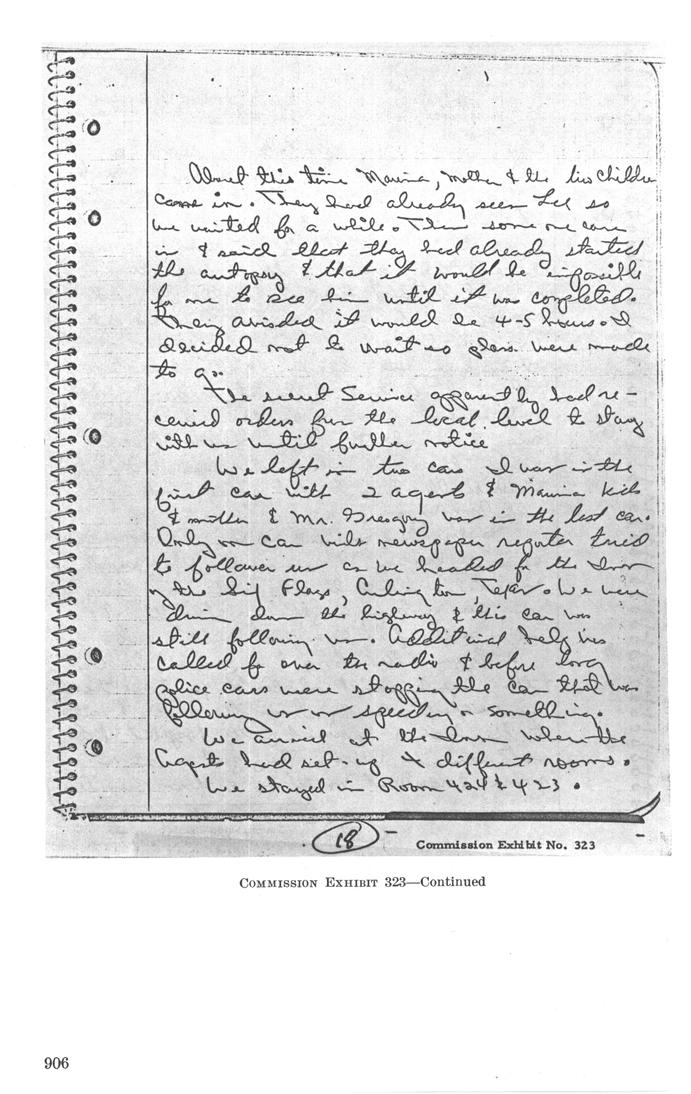 About this time Marina, Mother & the two children
came in. They had already seen Lee so
we waited for a while. Then some one came
in & said that they had already started
the autopsy & that it would be impossible
for me to see him until it was completed.
They advised it would be 4-5 hours. I
decided not to wait so plans were made
to go.
The secret Service apparently had re-
ceived orders from the local level to stay
with us until further notice
We left in two cars I was in the
first car with 2 agents & Marina kids
& mother & Mr. Gregory was in the last car.
Only one car with newspaper tried
to follow us as we headed for the Inn
of the Six Flags, Arlington, Texas. We were
down the highway & this car was
still following us. Additional help was
called for over the radio & before long
police cars were stopping the car that was
following us for speeding or something.
We arrived at the Inn where the
Agents had set-up different rooms.
We stayed in Room 424 & 423.
18
Commission Exhibit No. 323
COMMISSION EXHIBIT 323—Continued
906